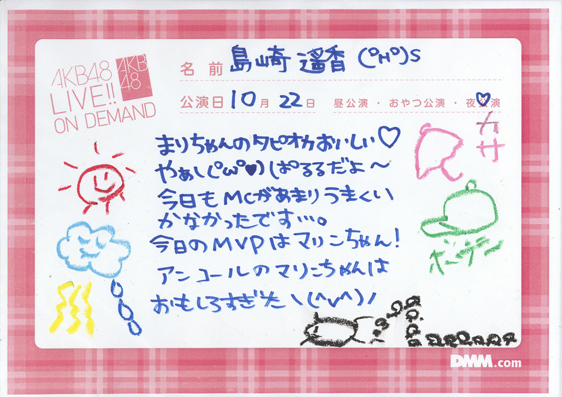 AKB48
LIVE!!
ON DEMAND
AKB
48
名前 島崎 遥香 (°н°)s
公演日 10月 22日 昼公演・おやつ公演・夜公演
カサ
まりちゃんのタピオカおいしい♡
やぁ\(°ω°♥)ぱるるだよ〜
今日もMCがあまりうまくい
かなかったです…。
今日のMVPはマリコちゃん!
アンコールのマリこちゃんは
おもしろすぎた\(^v^)/
DMM.com